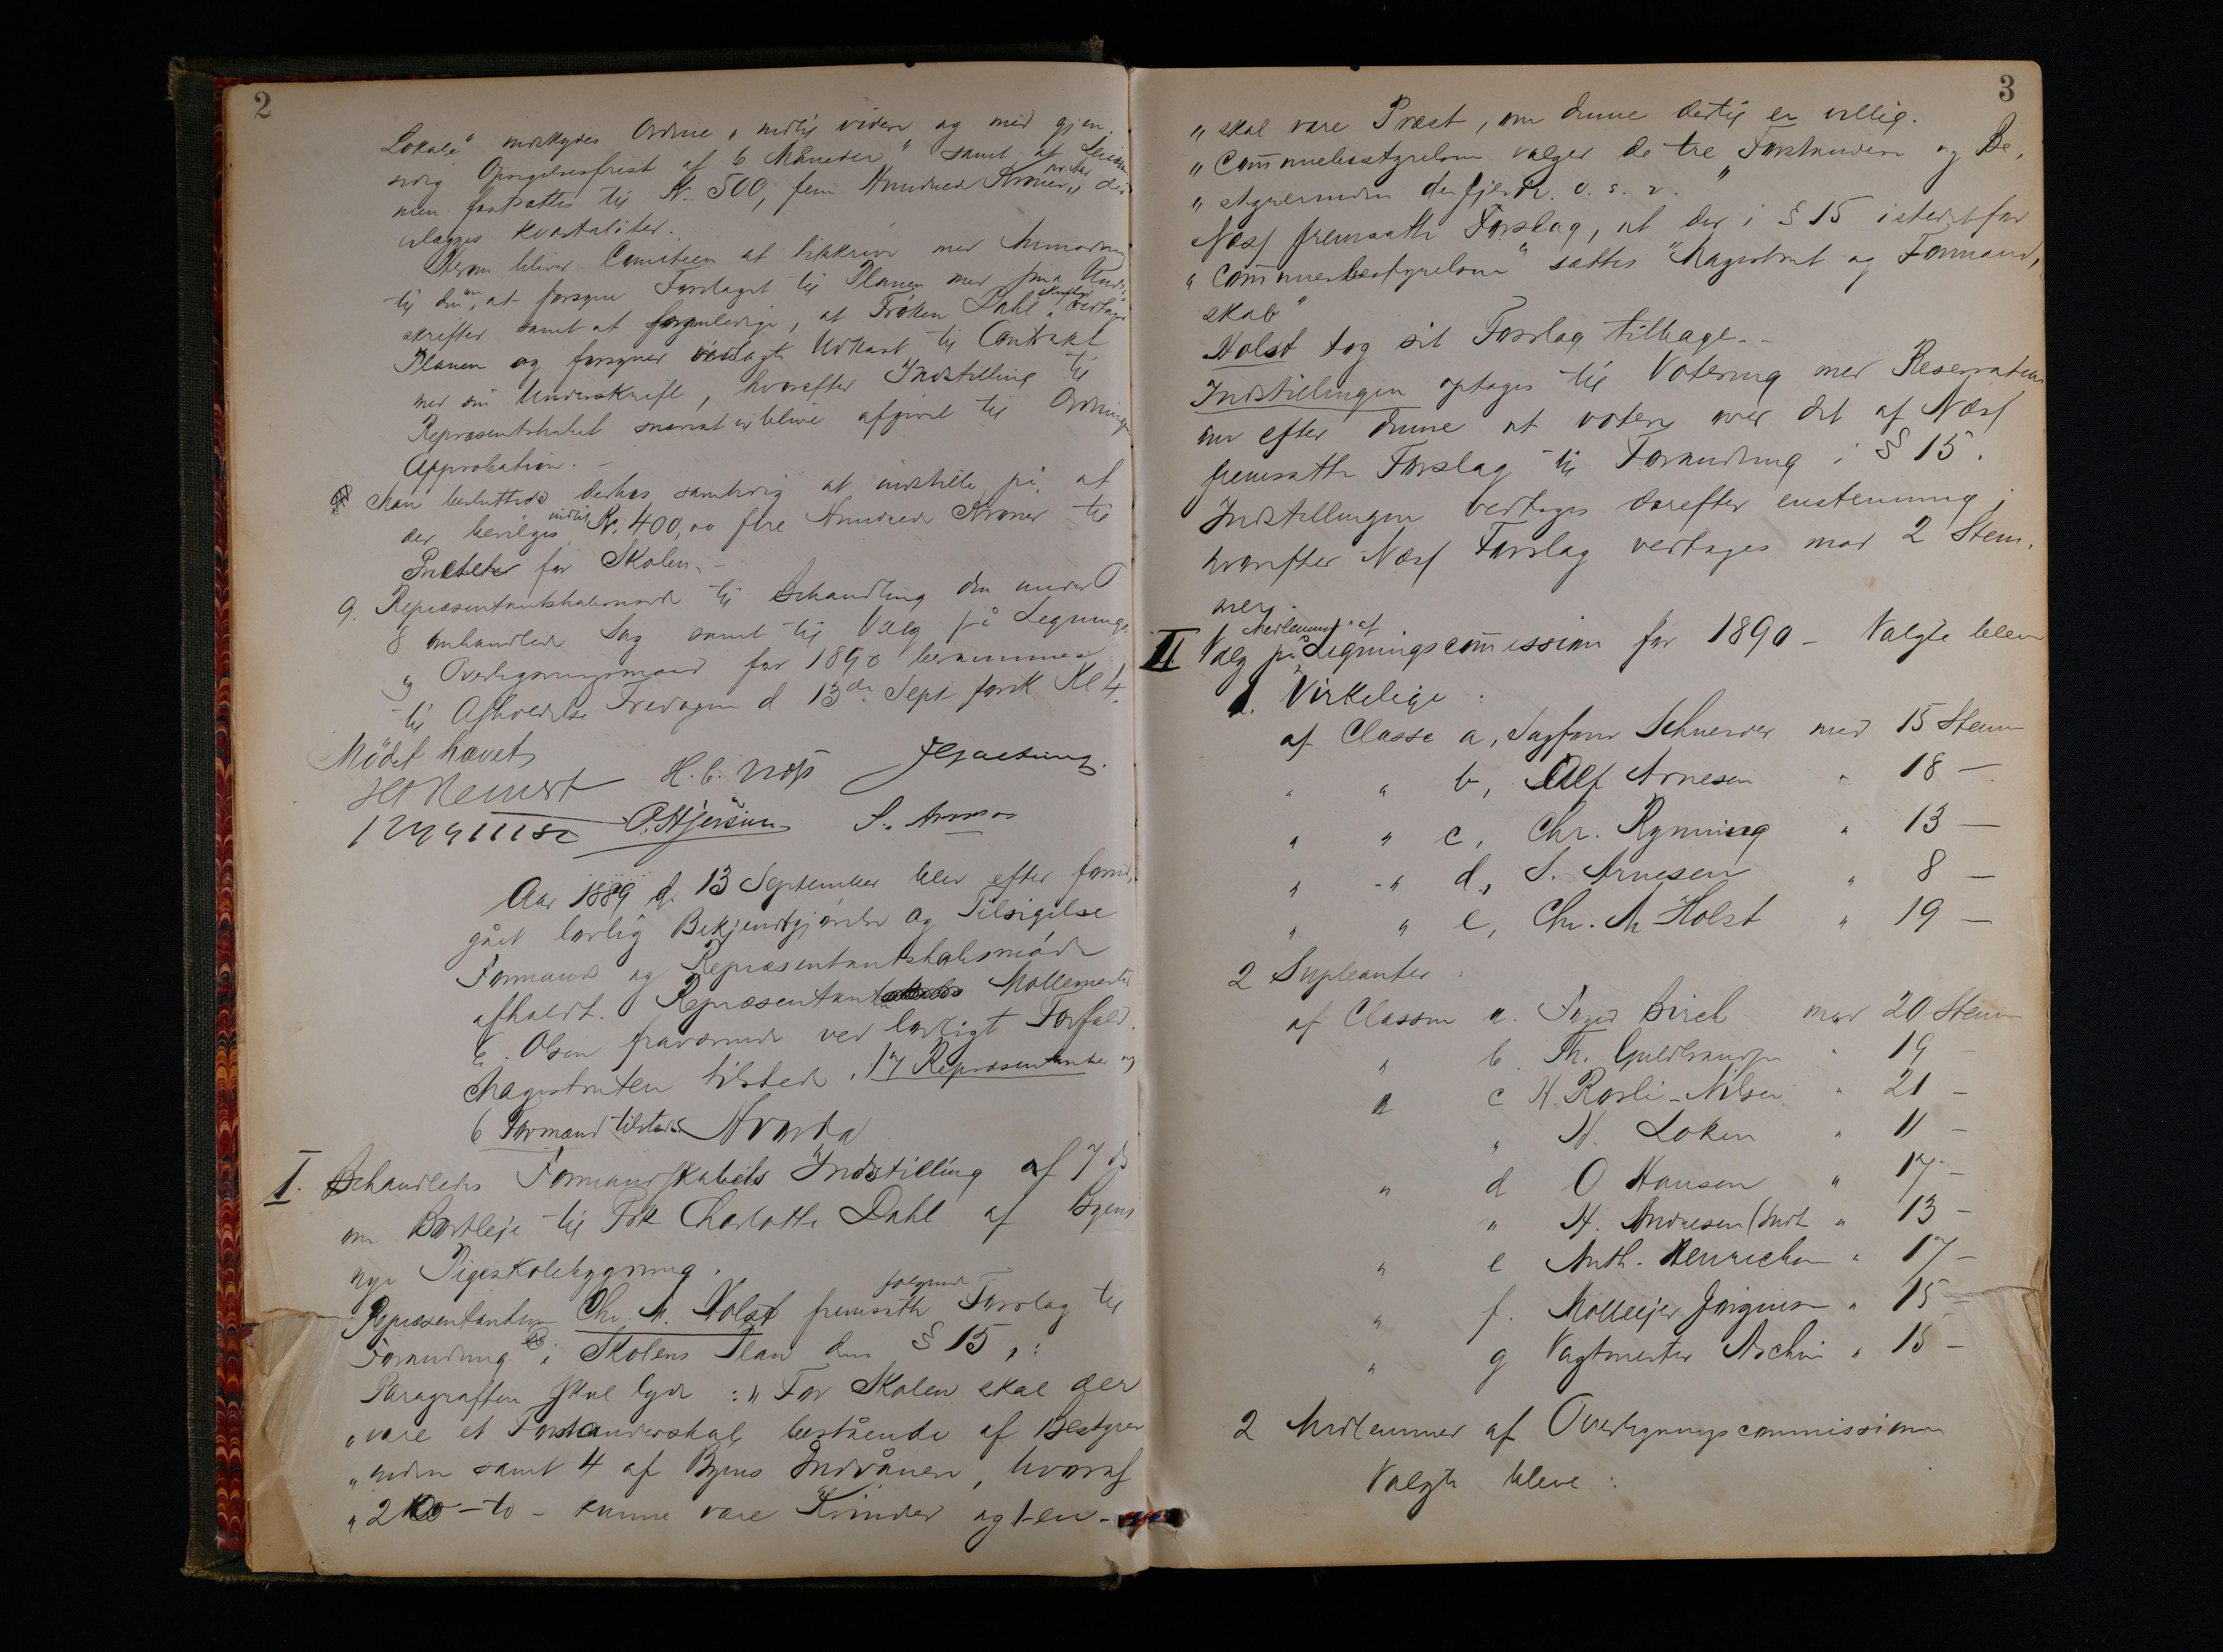 2
Lokale" indskydes Ordene "indtil videre og med gjen-
sidig Opsigelsesfrist af 6 Måneder" samt at Leiesum-
men fastsættes til Kr. 500, fem Hundrede Kroner,
erlægges kvartaliter.
bliver Comiteen at tilskrive med Anmodning
til den om, at forsyne Forslaget til Planen med sin Under-
skrifter samt at , at Frøken Dahl skriftlig vedtager
Planen og forsyner vedlagte Udkast til Contrakt
med sin Underskrift, hvorefter Indstilling til
Repræsentskabet snarest vil blive afgivet til Ordningens
Approbation. -
Man besluttede derhos samtidig at indstille på, at
der bevilges indtil Kr. 400,00 fire Hundrede Kroner til
Pulte for Skolen. -
9. Repræsentantskabsmøde til Behandling den under
8 omhandlede Sag samt til Valg på Lignings
og Overligningsmænd for 1890 berammes
til Afholdelse Fredagen d 13de Sept forst Kl 4.
Mödet hævet
H. C. Næss
O. Hjersing S. Arnesen
Aar 1889 d. 13 September blev efter forud-
gået lovlig Bekjendtgjørelse og Tilsigelse
Formand og Repræsentantskabsmöde
afholdt. Repræsentant Møllemester
E. Olsen fraværende ved lovligt Forfald.
Magistraten tilstede. 17 Repræsentanter og
6 Formænd tilstede. Hvorda
I. Behandledes Formandskabets Indstilling af 7 ds
om Bortleje til Frk Charlotte Dahl af Byens
nye Pigeskolebygning.
Repræsentanten Chr. A. Holst fremsatte følgende Forslag til
Forandring i Skolens Plan dens § 15,:
Paragraffen skal lyde: "For Skolen skal der
"være et Forstanderskab bestående af Bestyrer
"inden samt 4 af Byens Indvånere, hvoraf
"2 - to - kunne være Kvinder og 1 - en -
3
"skal være Præst, om denne dertil er villig.
"Communebestyrelsen vælger de tre Forstandere og Be-
"styrerinden den fjerde. o. s. v."
Næss fremsatte Forslag, at der i § 15 istedetfor
"Communebestyrelsen" sættes "Magistrat og Formand-
skab"
Holst tog sit Forslag tilbage. -
Indstillingen optages til Votering med Reservation
om efter denne at votere over det af Næss
fremsatte Forslag til Forandring i § 15.
Indstillingen vedtoges derefter enstemmig;
hvorefter Næss Forslag vedtoges mod 2 Stem-
mer.
II. Valg på Medlemmer af Ligningscommission for 1890 - Valgte bleve
1. Virkelige:
af Classe a, Sagfører Schneider med 15 Stemmer
" " b, Alf Arnesen " 18 -
" " c, Chr. Ryning " 13 -
" " d, S. Arnesen " 8 -
" " e, Chr. A Holst " 19 -
2 Supleanter:
af Classen a. Foged Birch med 20 Stemmer
" b. Th. Guldbrandsen " 19 -
" c H. Rosli-Nilsen " 21 -
" H. Loken " 11 -
" d O Hansen " 17 -
" H. Andresen (Sndk " 13 -
" e Anth. Henrichsen " 17 -
" f. Mølleejer Jørgensen " 15 -
" g Vagtmester Aschim " 15 -
2 Medlemmer af Overligningscommissionen
Valgte bleve: